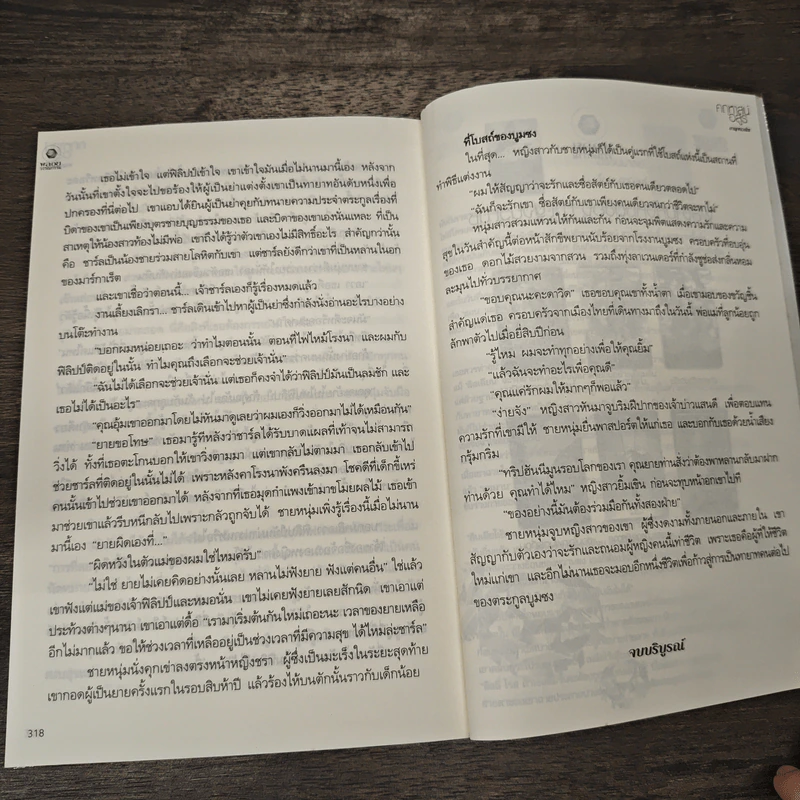 เธอไม่เข้าใจ แต่ฟิลิปป์เข้าใจ เขาเข้าใจมันเมื่อไม่นานมานี้เอง หลังจาก
วันนั้นที่เขาตั้งใจจะไปขอร้องให้ผู้เป็นย่าแต่งตั้งเขาเป็นทายาทอันดับหนึ่งเพื่อ
ปกครองที่นี่ต่อไป เขาแอบได้ยินผู้เป็นย่าคุยกับทนายความประจำตระกูลเรื่องที่
บิดาของเขาเป็นเพียงบุตรชายบุญธรรมของเธอ และบิดาของเขาเองนั่นแหละ ที่เป็น
สาเหตุให้น้องสาวท้องไม่มีพ่อ เขาถึงได้รู้ว่าตัวเองไม่มีสิทธิ์อะไร สำคัญกว่านั้น
คือ ชาร์ลเป็นน้องชายร่วมสายโลหิตกับเขา แต่ชาร์ลยังดีกว่าเขาที่เป็นหลานในอก
ของมาร์กาเร็ต
และเขาเชื่อว่าตอนนี้... เจ้าชาร์ลเองก็รู้เรื่องหมดแล้ว
งานเลี้ยงเลิกรา... ชาร์ลเดินเข้าไปหาผู้เป็นย่าซึ่งกำลังนั่งอ่านอะไรบางอย่าง
บนโต๊ะทำงาน
“บอกผมหน่อยเถอะ ว่าทำไมตอนนั้น ตอนที่ไฟไหม้โรงนา และผมกับ
ฟิลิปป์ติดอยู่ในนั้น ทำไมคุณถึงเลือกจะช่วยเจ้านั่น”
“ฉันไม่ได้เลือกจะช่วยเจ้านั่น แต่เธอก็คงจำได้ว่าฟิลิปป์มันเป็นลมชัก และ
เธอไม่ได้เป็นอะไร”
“คุณอุ้มเขาออกมาโดยไม่หันมาดูเลยว่าผมเองก็วิ่งออกมาไม่ได้เหมือนกัน”
“ยายขอโทษ” เธอมารู้ทีหลังว่าชาร์ลได้รับบาดแผลที่เท้าจนไม่สามารถ
วิ่งได้ ทั้งที่เธอตะโกนบอกให้เขาวิ่งตามมา แต่เขากลับไม่ตามมา เธอกลับเข้าไป
ช่วยชาร์ลที่ติดอยู่ในนั้นไม่ได้ เพราะหลังคาโรงนาพังครืนลงมา โชคดีที่เด็กขี้เหร่
คนนั้นเข้าไปช่วยเขาออกมาได้ หลังจากที่เธอมุดกำแพงเข้ามาขโมยผลไม้ เธอเข้า
มาช่วยเขาแล้วรีบหนีกลับไปเพราะกลัวถูกจับได้ ชายหนุ่มเพิ่งรู้เรื่องนี้เมื่อไม่นาน
มานี้เอง “ยายผิดเองที่...”
“ผิดหวังในตัวแม่ของผมใช่ไหมครับ”
“ไม่ใช่ ยายไม่เคยคิดอย่างนั้นเลย หลานไม่ฟังยาย ฟังแต่คนอื่น” ใช่แล้ว
เขาฟังแต่แม่ของเจ้าฟิลิปป์และหมอนั่น เขาไม่เคยฟังย่าเลยสักนิด เขาเอาแต่
ประท้วงต่างๆนานา เขาเอาแต่ดื้อ “เรามาเริ่มต้นกันใหม่เถอะนะ เวลาของยายเหลือ
อีกไม่มากแล้ว ขอให้ช่วงเวลาที่เหลืออยู่เป็นช่วงเวลาที่มีความสุข ได้ไหมล่ะชาร์ล”
ชายหนุ่มนั่งคุกเข่าลงตรงหน้าหญิงชรา ผู้ซึ่งเป็นมะเร็งในระยะสุดท้าย
เขากอดผู้เป็นยายครั้งแรกในรอบสิบห้าปี แล้วร้องไห้บนตักนั้นราวกับเด็กน้อย
318
ที่โบสถ์ของบูมซง
ในที่สุด... หญิงสาวกับชายหนุ่มก็ได้เป็นคู่แรกที่ใช้โบสถ์แห่งนี้เป็นสถานที่
ทำพิธีแต่งงาน
“ผมให้สัญญาว่าจะรักและซื่อสัตย์กับเธอคนเดียวตลอดไป”
“ฉันก็จะรักเขา ซื่อสัตย์กับเขาเพียงคนเดียวจนกว่าชีวิตจะหาไม่”
หนุ่มสาวสวมแหวนให้กันและกัน ก่อนจะจุมพิตแสดงความรักและความ
สุขในวันสำคัญนี้ต่อหน้าสักขีพยานนับร้อยจากโรงงานบูมซง ครอบครัวที่อบอุ่น
ของเธอ ดอกไม้สวยงามจากสวน รวมถึงทุ่งลาเวนเดอร์ที่กำลังชูช่อส่งกลิ่นหอม
ละมุนไปทั่วบรรยากาศ
“ขอบคุณนะคะดาวิด” เธอขอบคุณเขาทั้งน้ำตา เมื่อเขามอบของขวัญชิ้น
สำคัญแด่เธอ ครอบครัวจากเมืองไทยที่เดินทางมาถึงในวันนี้ พ่อแม่ที่ลูกน้อยถูก
ลักพาตัวไปเมื่อยี่สิบปีก่อน
“รู้ไหม ผมจะทำทุกอย่างเพื่อให้คุณยิ้ม”
“แล้วฉันจะทำอะไรเพื่อคุณดี”
“คุณแค่รักผมให้มากๆก็พอแล้ว”
“ง่ายจัง” หญิงสาวหันมาจูบริมฝีปากของเจ้าบ่าวแสนดี เพื่อตอบแทน
ความรักที่เขามีให้ ชายหนุ่มยื่นพาสปอร์ตให้แก่เธอ และบอกกับเธอด้วยน้ำเสียง
กรุ้มกริ่ม
“ทริปฮันนีมูนรอบโลกของเรา คุณยายท่านสั่งว่าต้องพาหลานกลับมาฝาก
ท่านด้วย คุณทำได้ไหม” หญิงสาวยิ้มเขิน ก่อนจะทุบหน้าอกเขาไปที
“ของอย่างนี้มันต้องร่วมมือกันทั้งสองฝ่าย”
ชายหนุ่มจูบหญิงสาวของเขา ผู้ซึ่งงดงามทั้งภายนอกและภายใน เขา
สัญญากับตัวเองว่าจะรักและถนอมผู้หญิงคนนี้เท่าชีวิต เพราะเธอคือผู้ที่ให้ชีวิต
ใหม่แก่เขา และอีกไม่นานเธอจะมอบอีกหนึ่งชีวิตเพื่อก้าวสู่การเป็นทายาทคนต่อไป
ของตระกูลบูมซง
จบบริบูรณ์